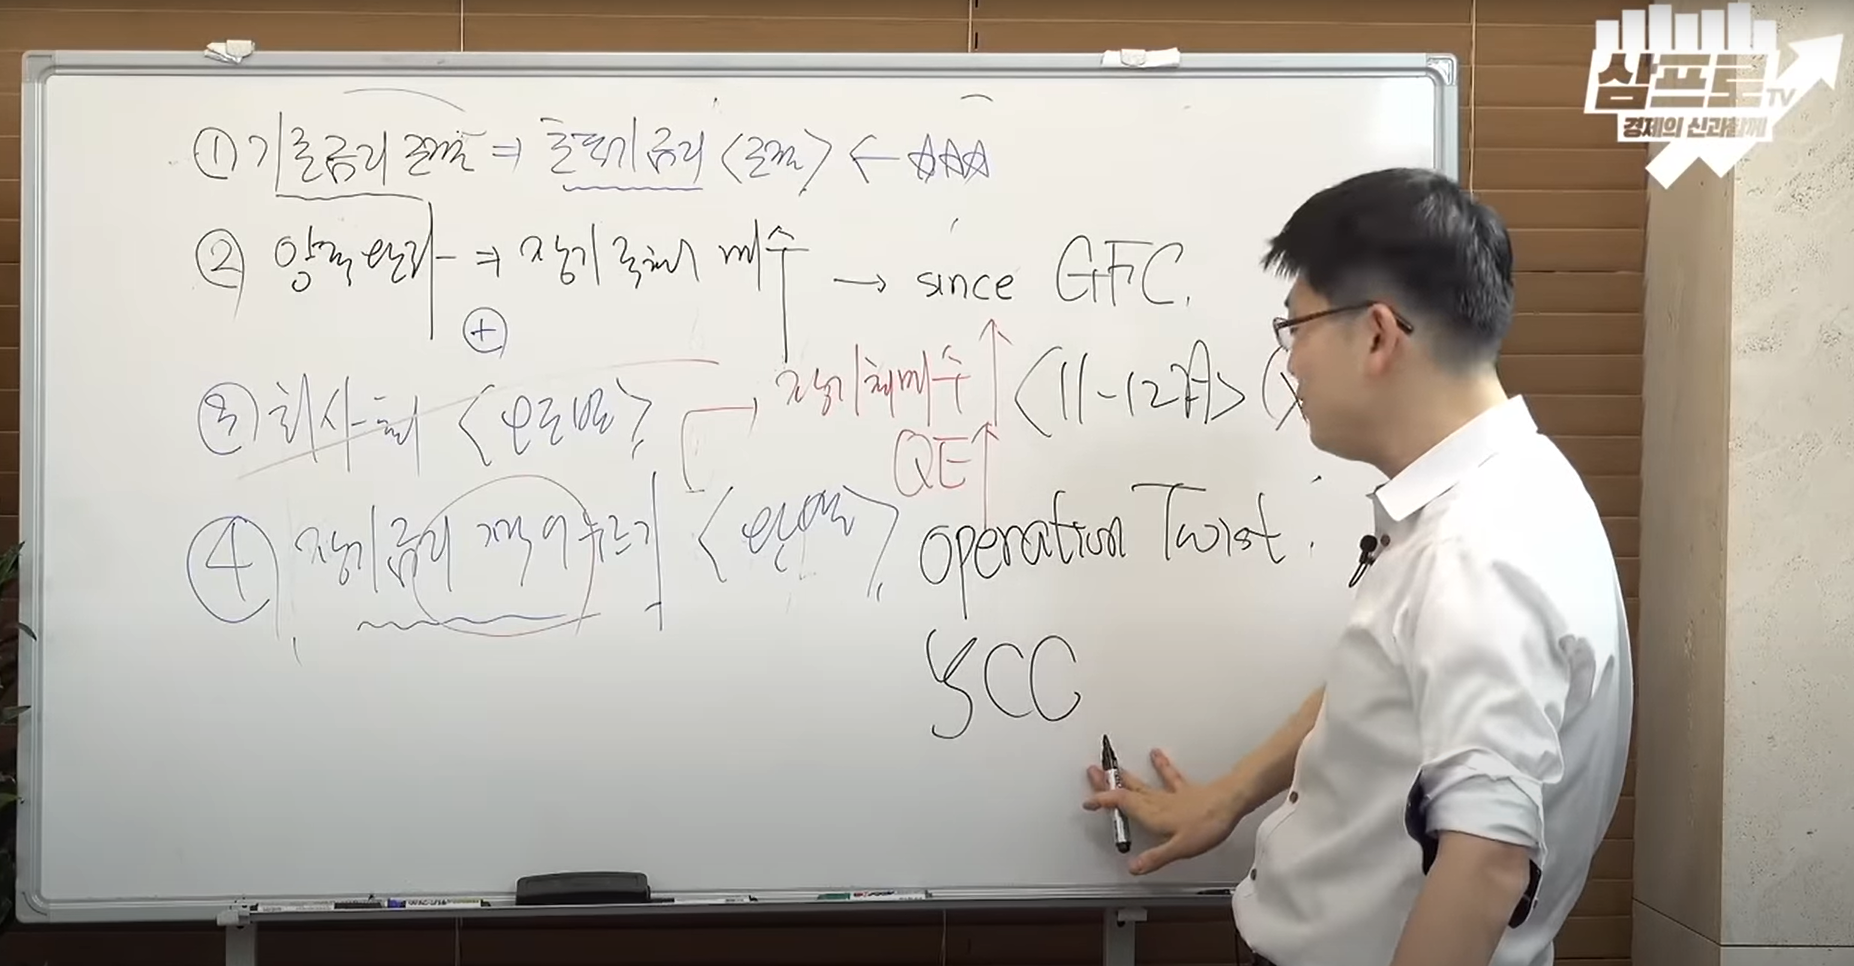 삼프로TV
경제의 신과함께
① 기준금리 조절 ⇒ 초단기금리 <조절> ← ☆☆☆
② 양적완화 ⇒ 장기국채 매수 → since GFC.
+
③ 회사채 <오로발> 장기채매수 <11-12月>
QE
④ 장기금리 찍어누르기 operation Twist.
YCC